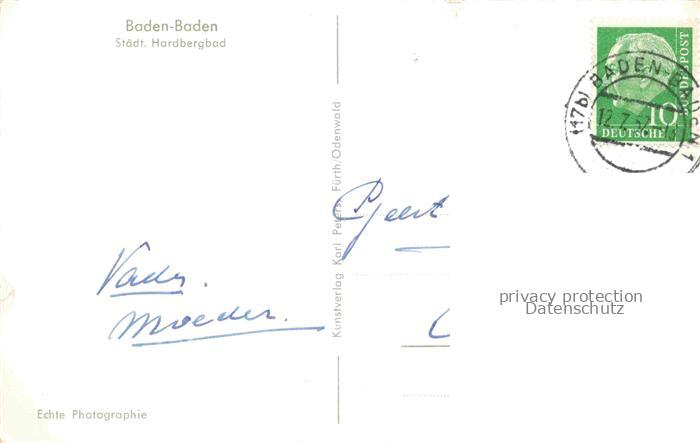 Baden-Baden
Städt. Hardbergbad
Vader.
Moeder.
Echte Photographie
Kunstverlag Karl Peters, Fürth/Odenwald
10
DEUTSCHE
BUNDESPOST
(17b) BADEN-BADEN 1
12.7.57
Geert
privacy protection
Datenschutz